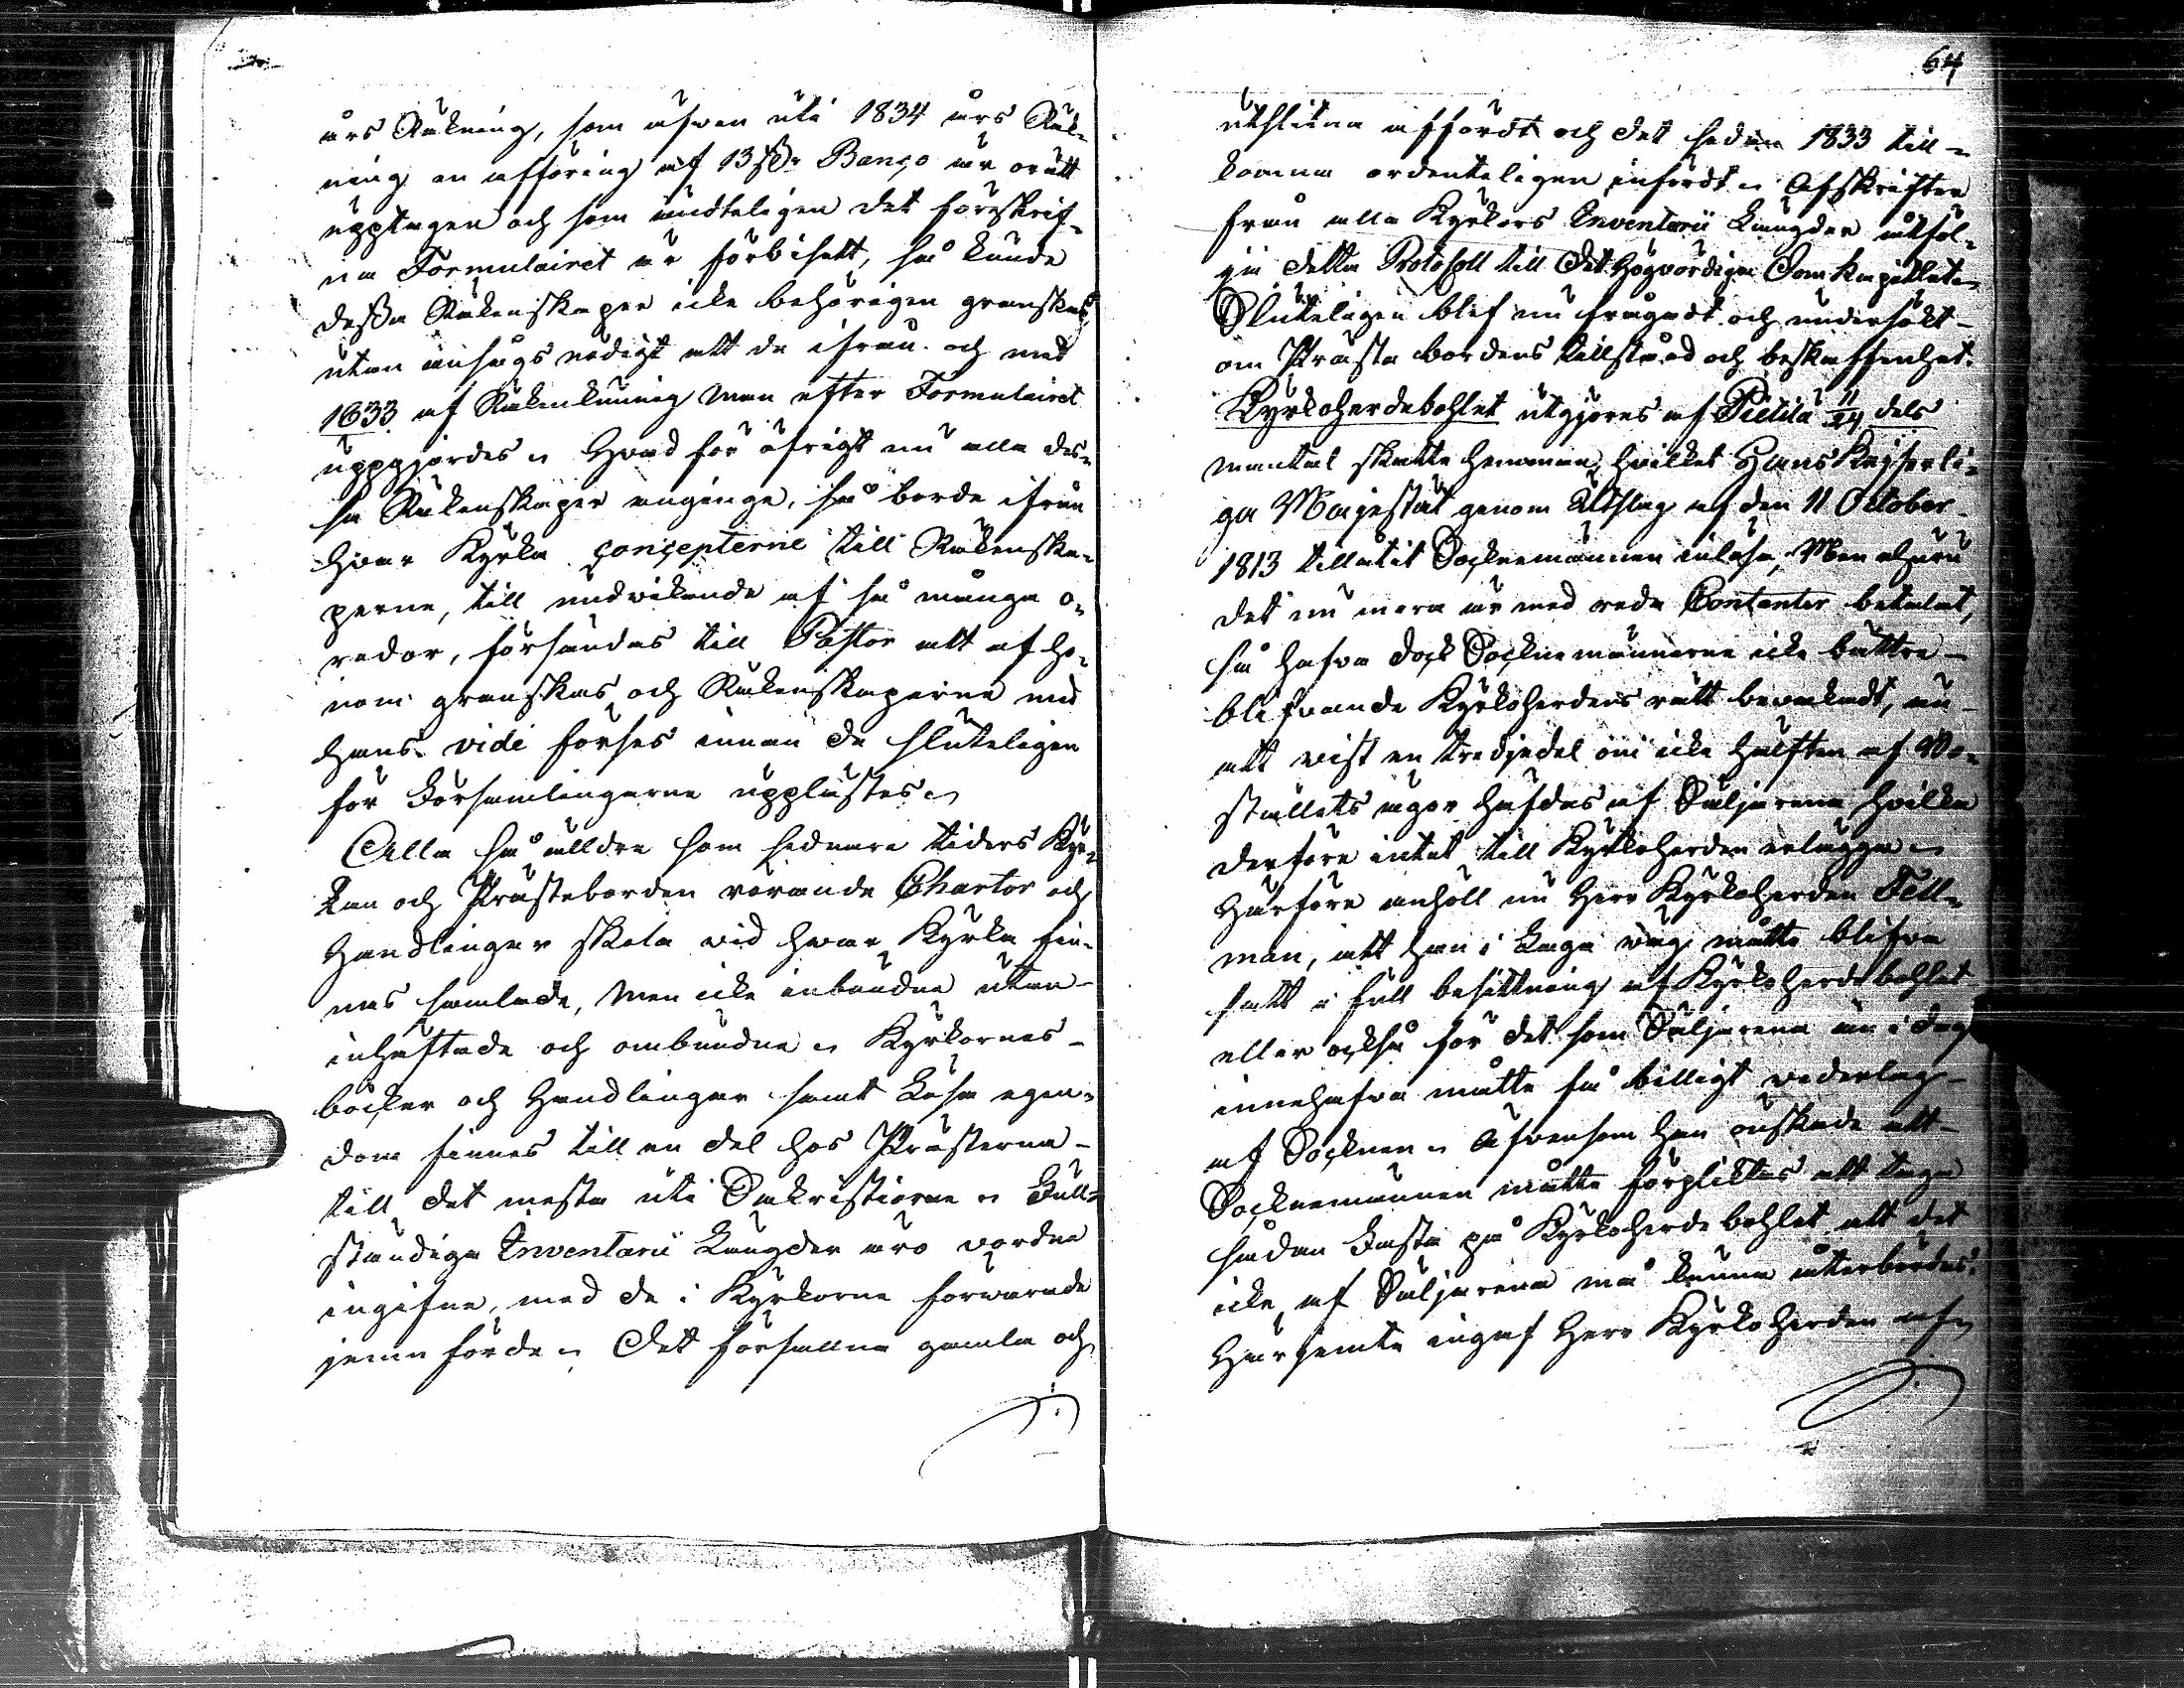 års Räkning, som äfven uti 1834 års Räk-
ning en afföring af 13 Rdr Banco är orätt
upptagen och som ändteligen det föreskrif-
na Formulairet är förbisett, så kunde
dessa Räkenskaper icke behörigen granskas
utan ansågs nödigt att de ifrån och med
1833 af Räkenkunnig man efter Formulairet
uppgjordes. Hvad för öfrigt nu alla des-
sa Räkenskaper anginge, så borde ifrån
hvar Kyrka concepterne till Räkenska-
perne, till undvikande af så många o-
redor, försändas till Pastor att af ho-
nom granskas och Räkenskaperne med
hans vidi förses innan de sluteligen
för Församlingarne upplästes.
Alla så älldre som sednare tiders Kyr-
kan och Prästeborden rörande Chartor och
Handlingar skola vid hvar Kyrka fin-
nas samlade, men icke inbundne utan
inhäftade och ombundne. Kyrkornes
böcker och Handlingar samt Lösa egen-
dom finnes till en del hos Prästerna
till det mesta uti Sakristiorne. Full-
ständiga Inventarii Längder äro vordne
ingifne, med de i Kyrkorne förvarade
jemnförde. Det förfallna gamla och
64
utslitna affördt och det sedan 1833 till-
komna ordenteligen infördt. Afskrifter
från alla Kyrkors Inventarii Längder åtföl-
ja detta Protocoll till Det Högvördiga Domkapitlet.
Sluteligen blef nu frågadt och undersökt
om Prästabordens tillstånd och beskaffenhet.
Kyrkoherdebohlet utgjöres af Pietilä 11/24 dels
mantal skatte hemman, hvilket Hans Kejserli-
ga Majestät genom Utslag af den 11 October
1813 tillåtit Socknemännen inlösa, Men ehuru
det nu mera är med reda Contanter betalat,
så hafva dock Socknemännerne icke bättre
blifvande Kyrkoherdens rätt bevakadt, än
att vist en tredjedel om icke hälften af Bo-
ställets ägor häfdas af Säljarena hvilka
derföre intet till Kyrkoherden erlägga.
Härföre anhöll nu Herr Kyrkoherden Fell-
man, att han i Laga väg måtte blifva
satt i full besittning af Kyrkoherdebohlet
eller också för det som Säljarena än i dag
innehafva måtte få billigt vederlag
af Socknen. Äfvensom han önskade att
Socknemännen måtte förpliktas att taga
sådan Fasta på Kyrkoherdebohlet att det
icke af Säljarena må kunna återbördas.
Härjemte ingaf Herr Kyrkoherden af